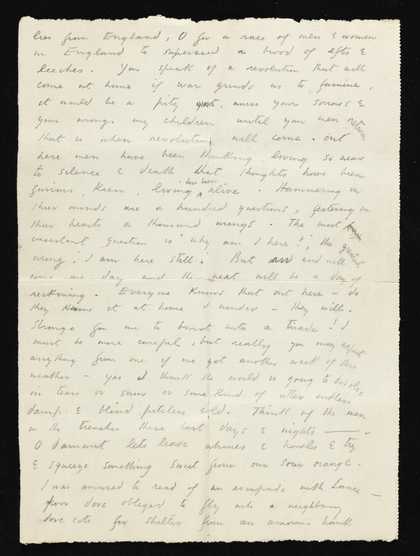 lies from England, O for a race of men & women
in England to supersede a brood of efts &
leeches. You speak of a revolution that will
come at home if war grinds us to famine,
it would be a pity yet, nurse your sorrows &
your wrongs my children until your men return
that is when revolution will come. Out
here men have been thinking living so near
to silence & death that thoughts have been
furious, keen, living alive. Hammering in
their minds are a hundred questions, festering in
their hearts a thousand wrongs. The most
insistent question is 'why am I here'; the greatest
wrong; 'I am here still'. But and will
come one day and the next will be a day of
reckoning. Everyone knows that out here — do
they know it at home I wonder — they will.
Strange for me to burst into a tirade! I
must be more careful, but really you may expect
anything from one if we get another week of this
weather — yes I think the world is going to
in tears or or some kind of utter endless
damp & blind pitiless cold. Think of the men
in the trenches these last days & nights —
O damnit lets leave whines & howls & try
& squeeze something sweet from our sour orange.
I was amused to read of an escapade with
poor dove obliged to fly into a neighbouring
dove cote for shelter from an amorous hawk